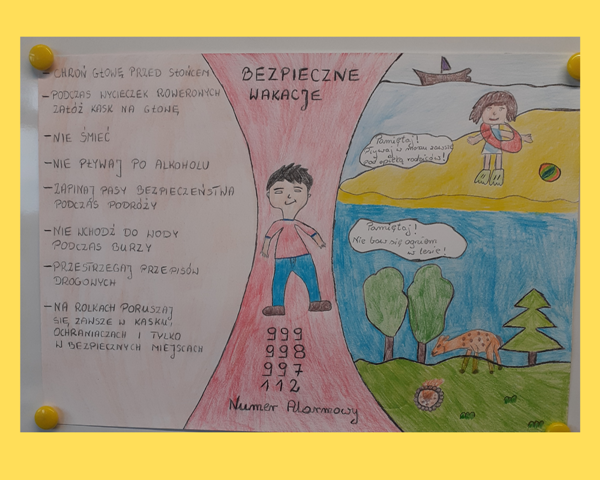 - CHROŃ GŁOWĘ PRZED SŁOŃCEM
- PODCZAS WYCIECZEK ROWEROWYCH
ZAŁÓŻ KASK NA GŁOWĘ
- NIE ŚMIEĆ
- NIE PŁYWAJ PO ALKOHOLU
- ZAPINAJ PASY BEZPIECZEŃSTWA
PODCZAS PODRÓŻY
- NIE WCHODŹ DO WODY
PODCZAS BURZY
- PRZESTRZEGAJ PRZEPISÓW
DROGOWYCH
- NA ROLKACH PORUSZAJ
SIĘ ZAWSZE W KASKU,
OCHRANIACZACH I TYLKO
W BEZPIECZNYCH MIEJSCACH
BEZPIECZNE
WAKACJE
999
998
997
112
Numer Alarmowy
Pamiętaj!
Pływaj w morzu zawsze
pod opieką rodziców!
Pamiętaj!
Nie baw się ogniem
w lesie!